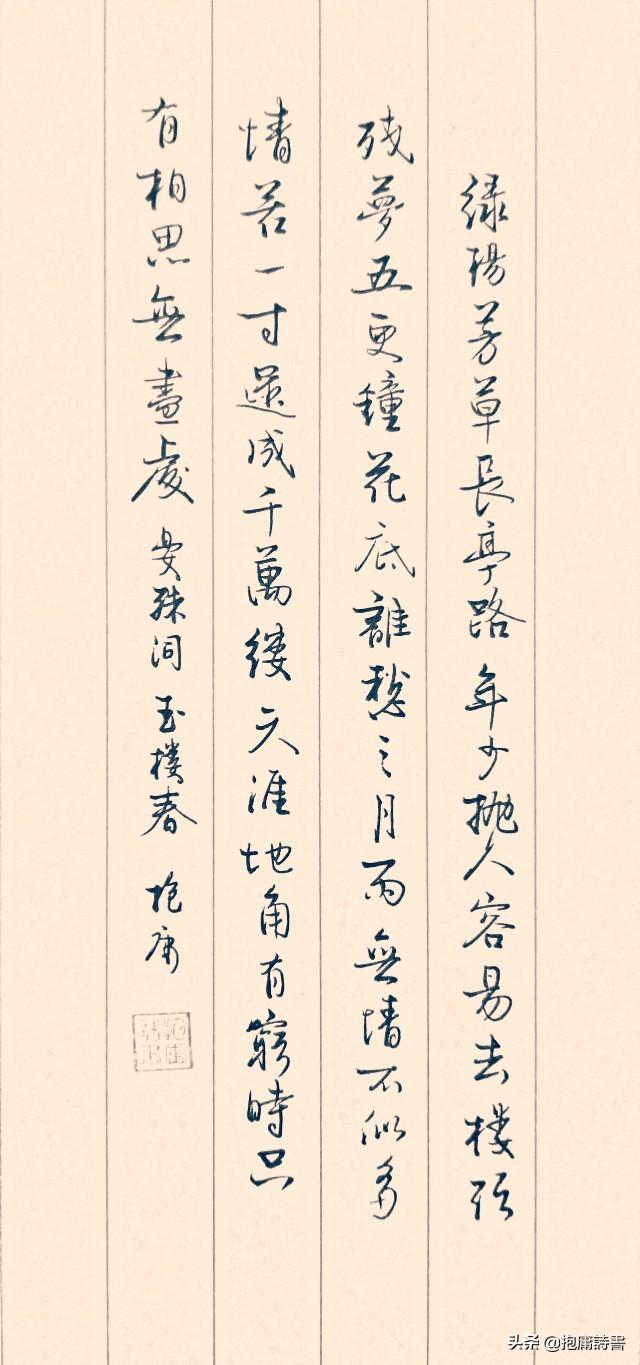 綠楊芳草長亭路年少拋人容易去樓頭
殘夢五更鐘花底離愁三月雨無情不似多
情苦一寸還成千萬縷天涯地角有窮時只
有相思無盡處 晏殊詞 玉樓春 抱庸
头条 @抱庸詩書